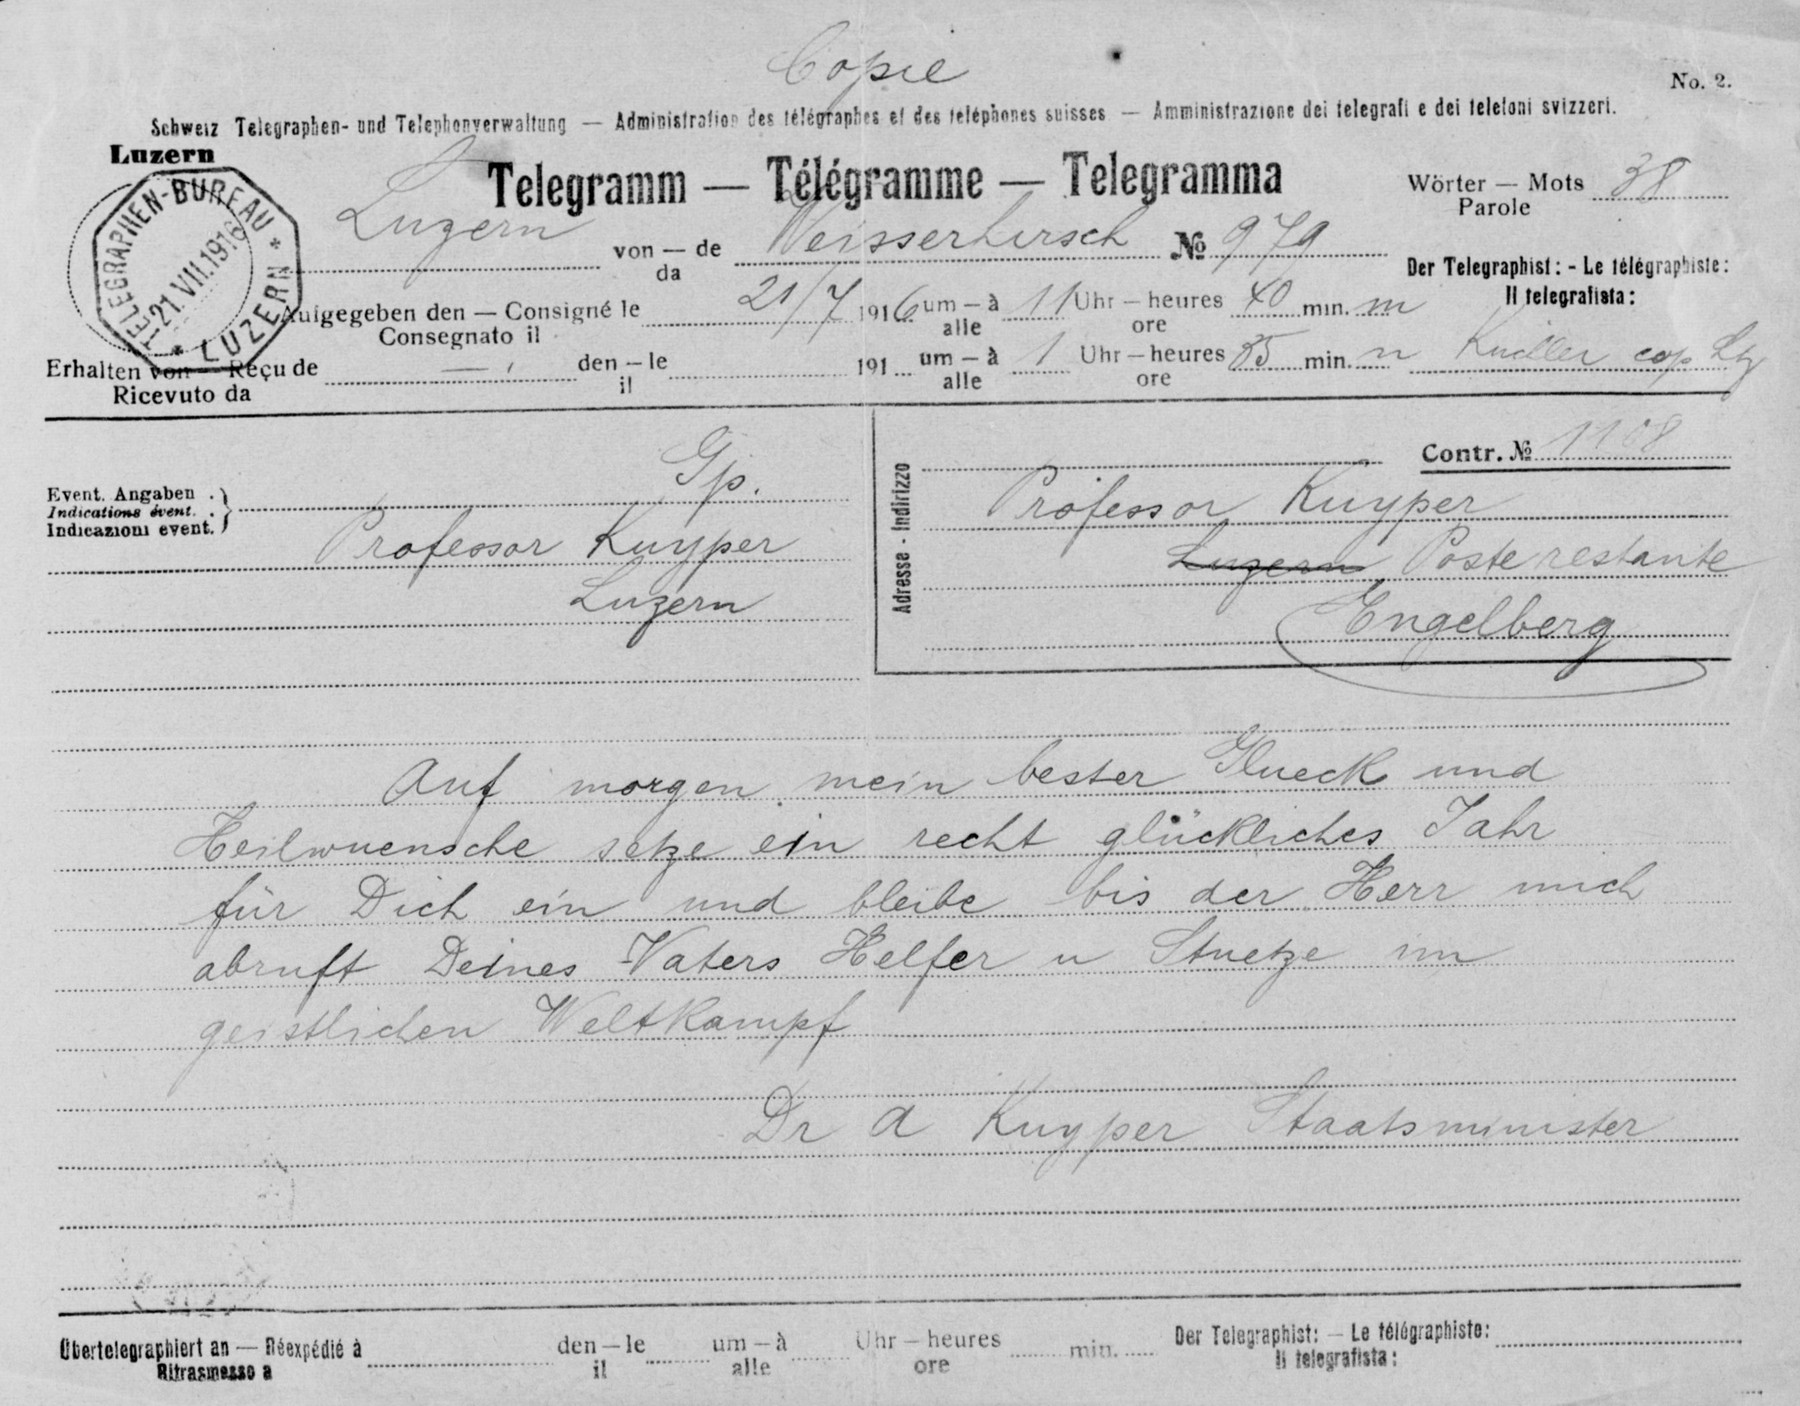 Copie
No. 2.
Schweiz Telegraphen- und Telephonverwaltung — Administration des télégraphes et des téléphones suisses — Amministrazione dei telegrafi e dei telefoni svizzeri.
Luzern
TELEGRAPHEN-BUREAU * LUZERN *
21.VII.1916
Telegramm — Télégramme — Telegramma
Wörter — Mots 38
Parole
Luzern von — de Weisserhirsch № 979
da
Der Telegraphist: - Le télégraphiste:
Il telegrafista:
Aufgegeben den — Consigné le 21/7 1916 um — à 11 Uhr — heures 40 min. m
Consegnato il alle ore
Erhalten von — Reçu de — den — le 191 um — à 1 Uhr — heures 35 min. n cop Lz
Ricevuto da il alle ore
Contr. № 1108
Event. Angaben
Indications évent.
Indicazioni event.
Gp.
Professor Kuyper
Luzern
Adresse - Indirizzo
Professor Kuyper
Luzern Poste restante
Engelberg
Auf morgen mein bester Glueck und
Heilwuensche setze ein recht glückliches Jahr
für Dich ein und bleibe bis der Herr mich
abruft Deines Vaters Helfer u Stuetze im
geistlichen Weltkampf
Dr A Kuyper Staatsminister
Übertelegraphiert an — Réexpédié à den — le um — à Uhr — heures min. Der Telegraphist: — Le télégraphiste:
Ritrasmesso a il alle ore Il telegrafista: